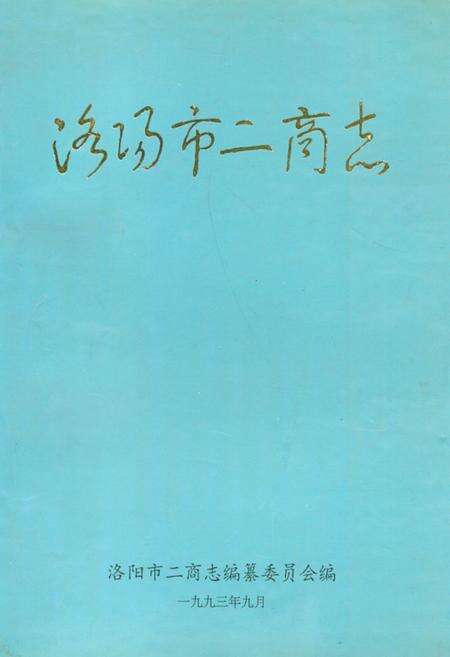 洛阳市二商志
洛阳市二商志编纂委员会编
一九九三年九月